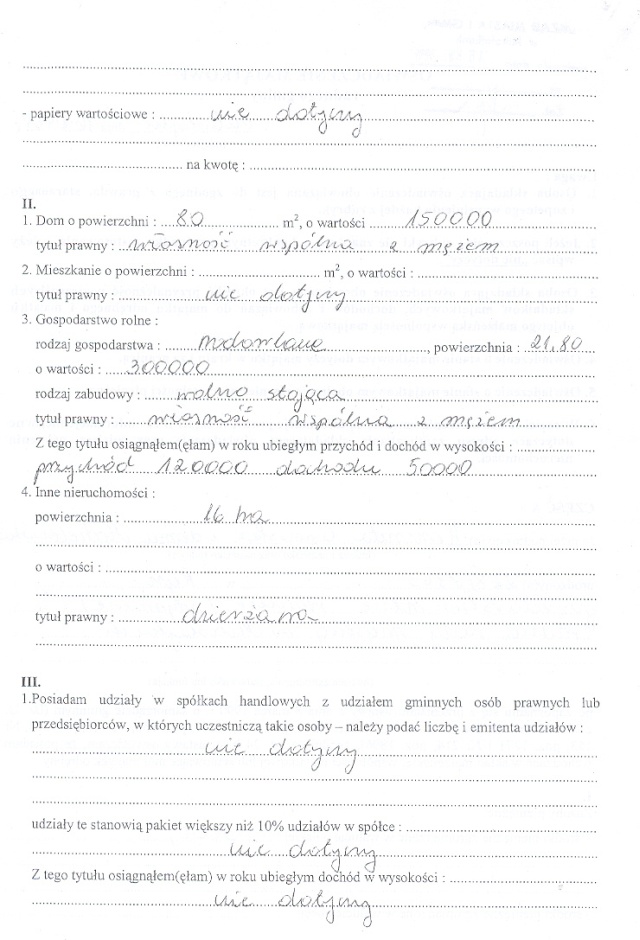 - papiery wartościowe : nie dotyczy
na kwotę :
II.
1. Dom o powierzchni : 80 m², o wartości 150000
tytuł prawny : własność wspólna z mężem
2. Mieszkanie o powierzchni : m², o wartości :
tytuł prawny : nie dotyczy
3. Gospodarstwo rolne :
rodzaj gospodarstwa : , powierzchnia : 21,80
o wartości : 300000
rodzaj zabudowy : wolno stojąca
tytuł prawny : własność wspólna z mężem
Z tego tytułu osiągnąłem(ęłam) w roku ubiegłym przychód i dochód w wysokości :
przychód 120000 dochodu 50000
4. Inne nieruchomości :
powierzchnia : 16 ha
o wartości :
tytuł prawny : dzierżawa
III.
1.Posiadam udziały w spółkach handlowych z udziałem gminnych osób prawnych lub
przedsiębiorców, w których uczestniczą takie osoby – należy podać liczbę i emitenta udziałów :
nie dotyczy
udziały te stanowią pakiet większy niż 10% udziałów w spółce :
nie dotyczy
Z tego tytułu osiągnąłem(ęłam) w roku ubiegłym dochód w wysokości :
nie dotyczy